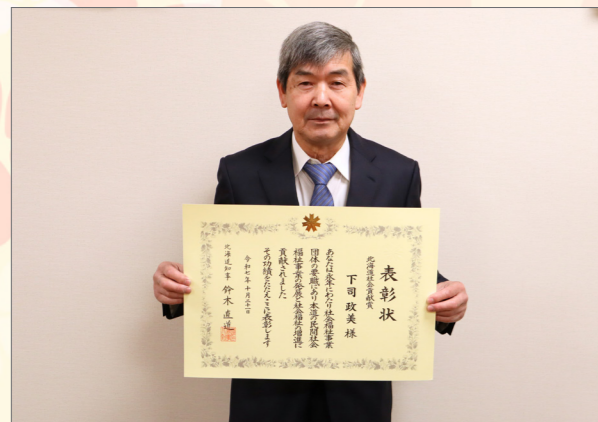 表彰状
北海道社会貢献賞
下司政美様
あなたは永年にわたり社会福祉事業
団体の要職にあり本道の民間社会
福祉事業の発展と社会福祉の増進に
貢献されました
その功績をたたえここに表彰します
令和七年十月三十一日
北海道知事 鈴木直道